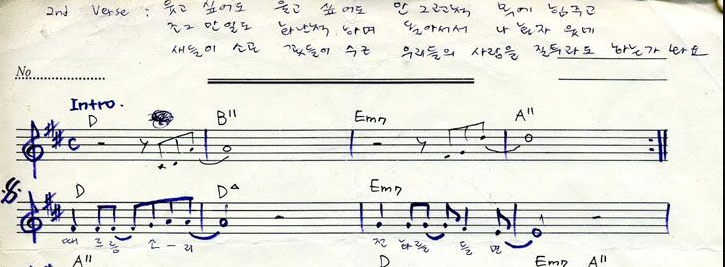 2nd Verse : 웃고 싶어도 울고 싶어도 안 그런척 목에 힘주고
만일도 하며 돌아서서 나 혼자 웃네
새들이 소곤 꽃들이 수군 우리들의 사랑을 질투라도 하는가 봐요
No
Intro.
D B11 Em7 A11
D D△ Em7
따르릉 소-리 전화를 들면
A11 D Em7 A11